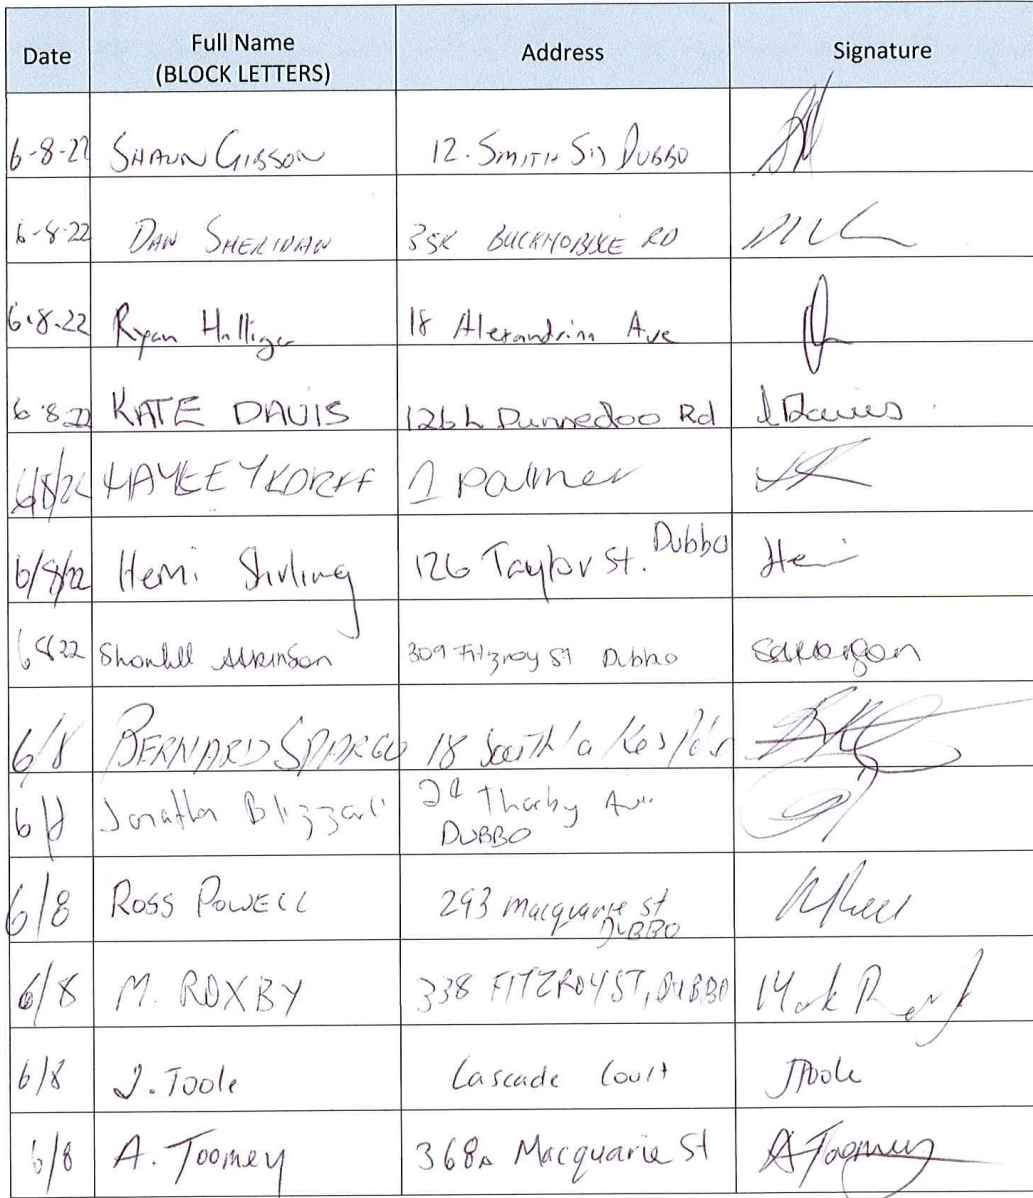 Date Full Name Address Signature
(BLOCK LETTERS)
6-8-22 SHAUN GIBSON 12. SMITH St) DUBBO
6-8-22 DAN SHERIDAN 35K RD
6.8.22 Ryan 18 Alexandrina Ave
6.8.22 KATE DAVIS 126L Dunnedoo Rd Davies
6/8/22 HAYLEY KORFF 1 Palmer
6/8/22 Hemi Stirling 126 Taylor St. Dubbo Hei
6 8 22 Atkinson 309 Fitzroy St Dubbo
6/8 BERNARD SPARGO 18
6/8 Jonathon Blizzard Ave
DUBBO
6/8 ROSS POWELL 293 Macquarie St
DUBBO
6/8 M. ROXBY 338 FITZROY ST, DUBBO Mark
6/8 J. Toole Cascade Court JToole
6/8 A. Toomey 368A Macquarie St A Toomey